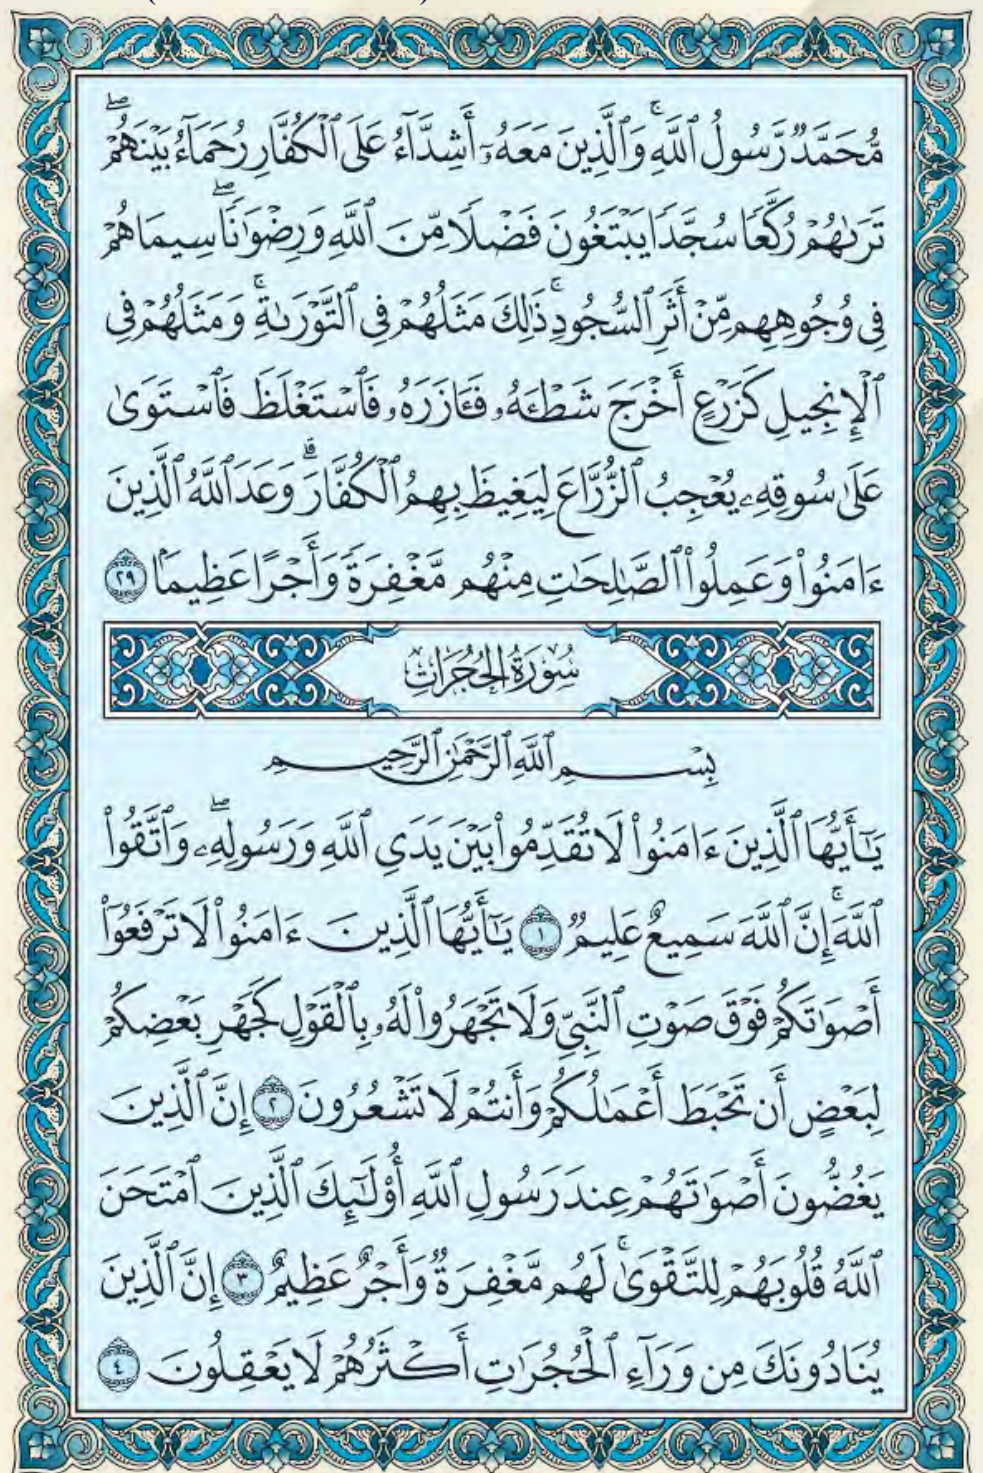 مُّحَمَّدٌ رَّسُولُ ٱللَّهِۚ وَٱلَّذِينَ مَعَهُۥٓ أَشِدَّآءُ عَلَى ٱلْكُفَّارِ رُحَمَآءُ بَيْنَهُمْۖ
تَرَىٰهُمْ رُكَّعًا سُجَّدًا يَبْتَغُونَ فَضْلًا مِّنَ ٱللَّهِ وَرِضْوَٰنًاۖ سِيمَاهُمْ
فِى وُجُوهِهِم مِّنْ أَثَرِ ٱلسُّجُودِۚ ذَٰلِكَ مَثَلُهُمْ فِى ٱلتَّوْرَىٰةِۚ وَمَثَلُهُمْ فِى
ٱلْإِنجِيلِ كَزَرْعٍ أَخْرَجَ شَطْـَٔهُۥ فَـَٔازَرَهُۥ فَٱسْتَغْلَظَ فَٱسْتَوَىٰ
عَلَىٰ سُوقِهِۦ يُعْجِبُ ٱلزُّرَّاعَ لِيَغِيظَ بِهِمُ ٱلْكُفَّارَۗ وَعَدَ ٱللَّهُ ٱلَّذِينَ
ءَامَنُوا۟ وَعَمِلُوا۟ ٱلصَّٰلِحَٰتِ مِنْهُم مَّغْفِرَةً وَأَجْرًا عَظِيمًۢا ٢٩
سُورَةُ الحُجُرَاتِ
بِسْمِ ٱللَّهِ ٱلرَّحْمَٰنِ ٱلرَّحِيمِ
يَٰٓأَيُّهَا ٱلَّذِينَ ءَامَنُوا۟ لَا تُقَدِّمُوا۟ بَيْنَ يَدَىِ ٱللَّهِ وَرَسُولِهِۦۖ وَٱتَّقُوا۟
ٱللَّهَۚ إِنَّ ٱللَّهَ سَمِيعٌ عَلِيمٌ ١ يَٰٓأَيُّهَا ٱلَّذِينَ ءَامَنُوا۟ لَا تَرْفَعُوٓا۟
أَصْوَٰتَكُمْ فَوْقَ صَوْتِ ٱلنَّبِىِّ وَلَا تَجْهَرُوا۟ لَهُۥ بِٱلْقَوْلِ كَجَهْرِ بَعْضِكُمْ
لِبَعْضٍ أَن تَحْبَطَ أَعْمَٰلُكُمْ وَأَنتُمْ لَا تَشْعُرُونَ ٢ إِنَّ ٱلَّذِينَ
يَغُضُّونَ أَصْوَٰتَهُمْ عِندَ رَسُولِ ٱللَّهِ أُو۟لَٰٓئِكَ ٱلَّذِينَ ٱمْتَحَنَ
ٱللَّهُ قُلُوبَهُمْ لِلتَّقْوَىٰۚ لَهُم مَّغْفِرَةٌ وَأَجْرٌ عَظِيمٌ ٣ إِنَّ ٱلَّذِينَ
يُنَادُونَكَ مِن وَرَآءِ ٱلْحُجُرَٰتِ أَكْثَرُهُمْ لَا يَعْقِلُونَ ٤